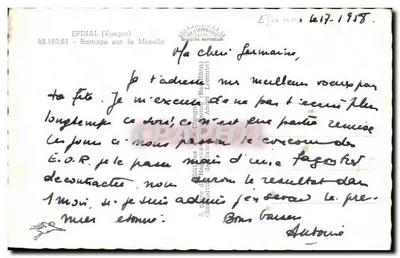 EPINAL (Vosges)
88.160.61 - Barrage sur la Moselle
Epinal le 17-1958.
Ma chère Germaine,
Je t'adresse mes meilleurs voeux par
ta fête. Je m'excuse de ne pas t'écrire plus
longtemps ce soir, ce n'est que partie remise
les jours ci nous passons le concours des
E.O.R. je le passe mais d'une façon très
décontractée, nous aurons le résultat dans
1 mois, si je suis admis j'en serai le pre-
mier étonné. Bons baisers
Antoine